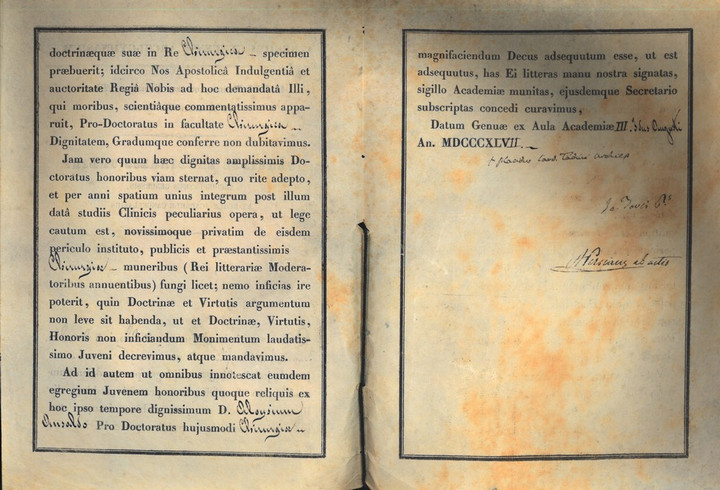 doctrinæquæ suæ in Re Chirurgica – specimen
præbuerit; idcirco Nos Apostolicâ Indulgentiâ et
auctoritate Regiâ Nobis ad hoc demandatâ Illi,
qui moribus, scientiâque commentatissimus appa-
ruit, Pro-Doctoratus in facultate Chirurgica –
Dignitatem, Gradumque conferre non dubitavimus.
Jam vero quum hæc dignitas amplissimis Do-
ctoratus honoribus viam sternat, quo rite adepto,
et per anni spatium unius integrum post illum
datâ studiis Clinicis peculiarius opera, ut lege
cautum est, novissimoque privatim de eisdem
periculo instituto, publicis et præstantissimis
Chirurgiæ – muneribus (Rei litterariæ Modera-
toribus annuentibus) fungi licet; nemo inficias ire
poterit, quin Doctrinæ et Virtutis argumentum
non leve sit habenda, ut et Doctrinæ, Virtutis,
Honoris non inficiandum Monimentum laudatis-
simo Juveni decrevimus, atque mandavimus.
Ad id autem ut omnibus innotescat eumdem
egregium Juvenem honoribus quoque reliquis ex
hoc ipso tempore dignissimum D. Aloysium
Ansaldo Pro Doctoratus hujusmodi Chirurgiæ –
magnifaciendum Decus adsequutum esse, ut est
adsequutus, has Ei litteras manu nostra signatas,
sigillo Academiæ munitas, ejusdemque Secretario
subscriptas concedi curavimus,
Datum Genuæ ex Aula Academiæ III Idus Augusti
An. MDCCCXLVII. –
+ Placidus Card. Tadini